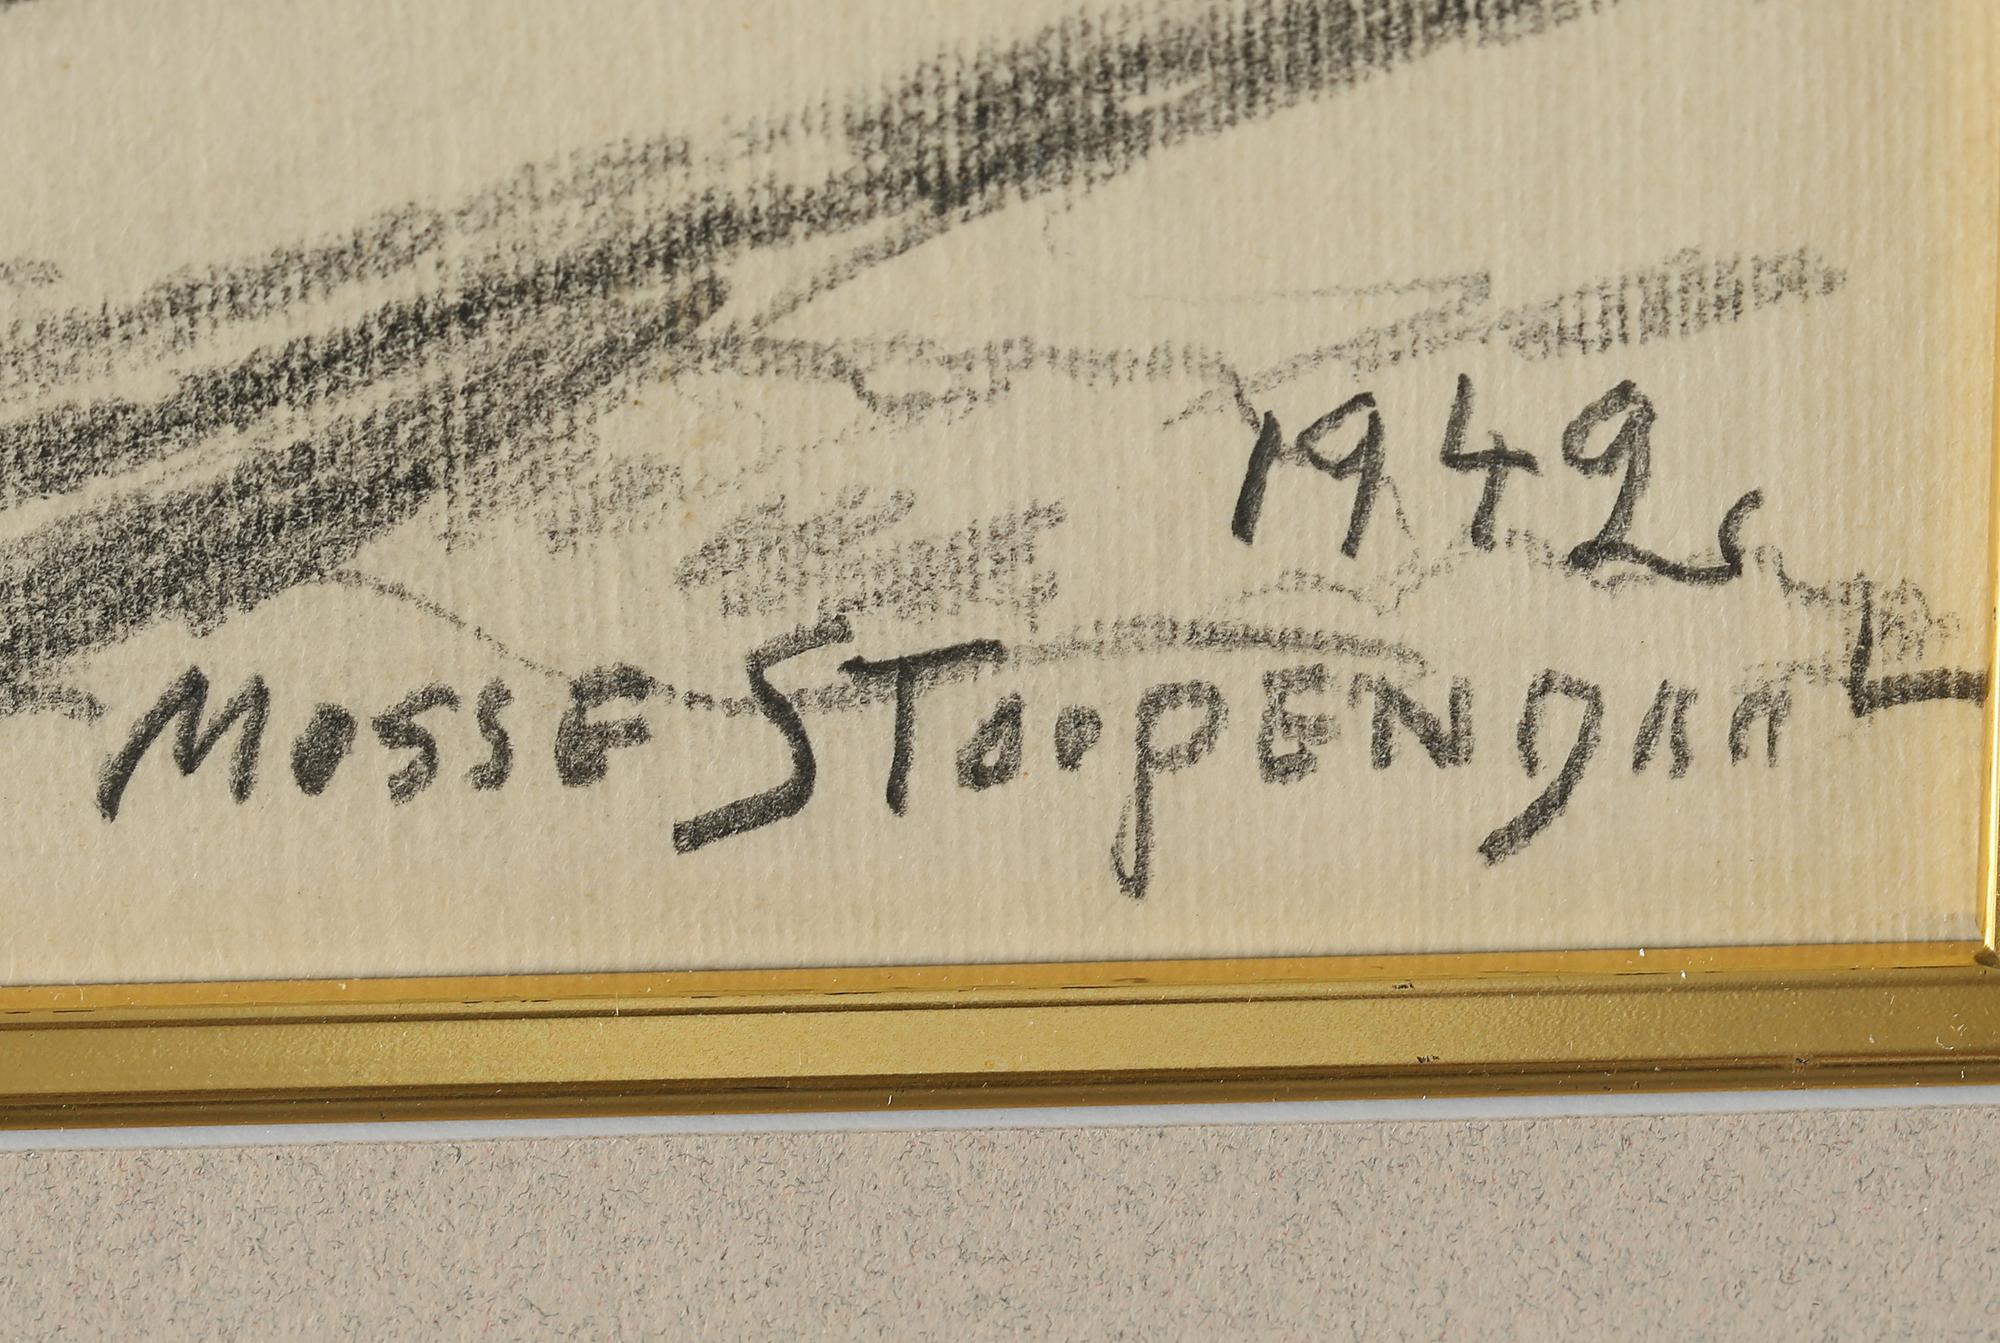 1942
MOSSE STOOPENDAAL